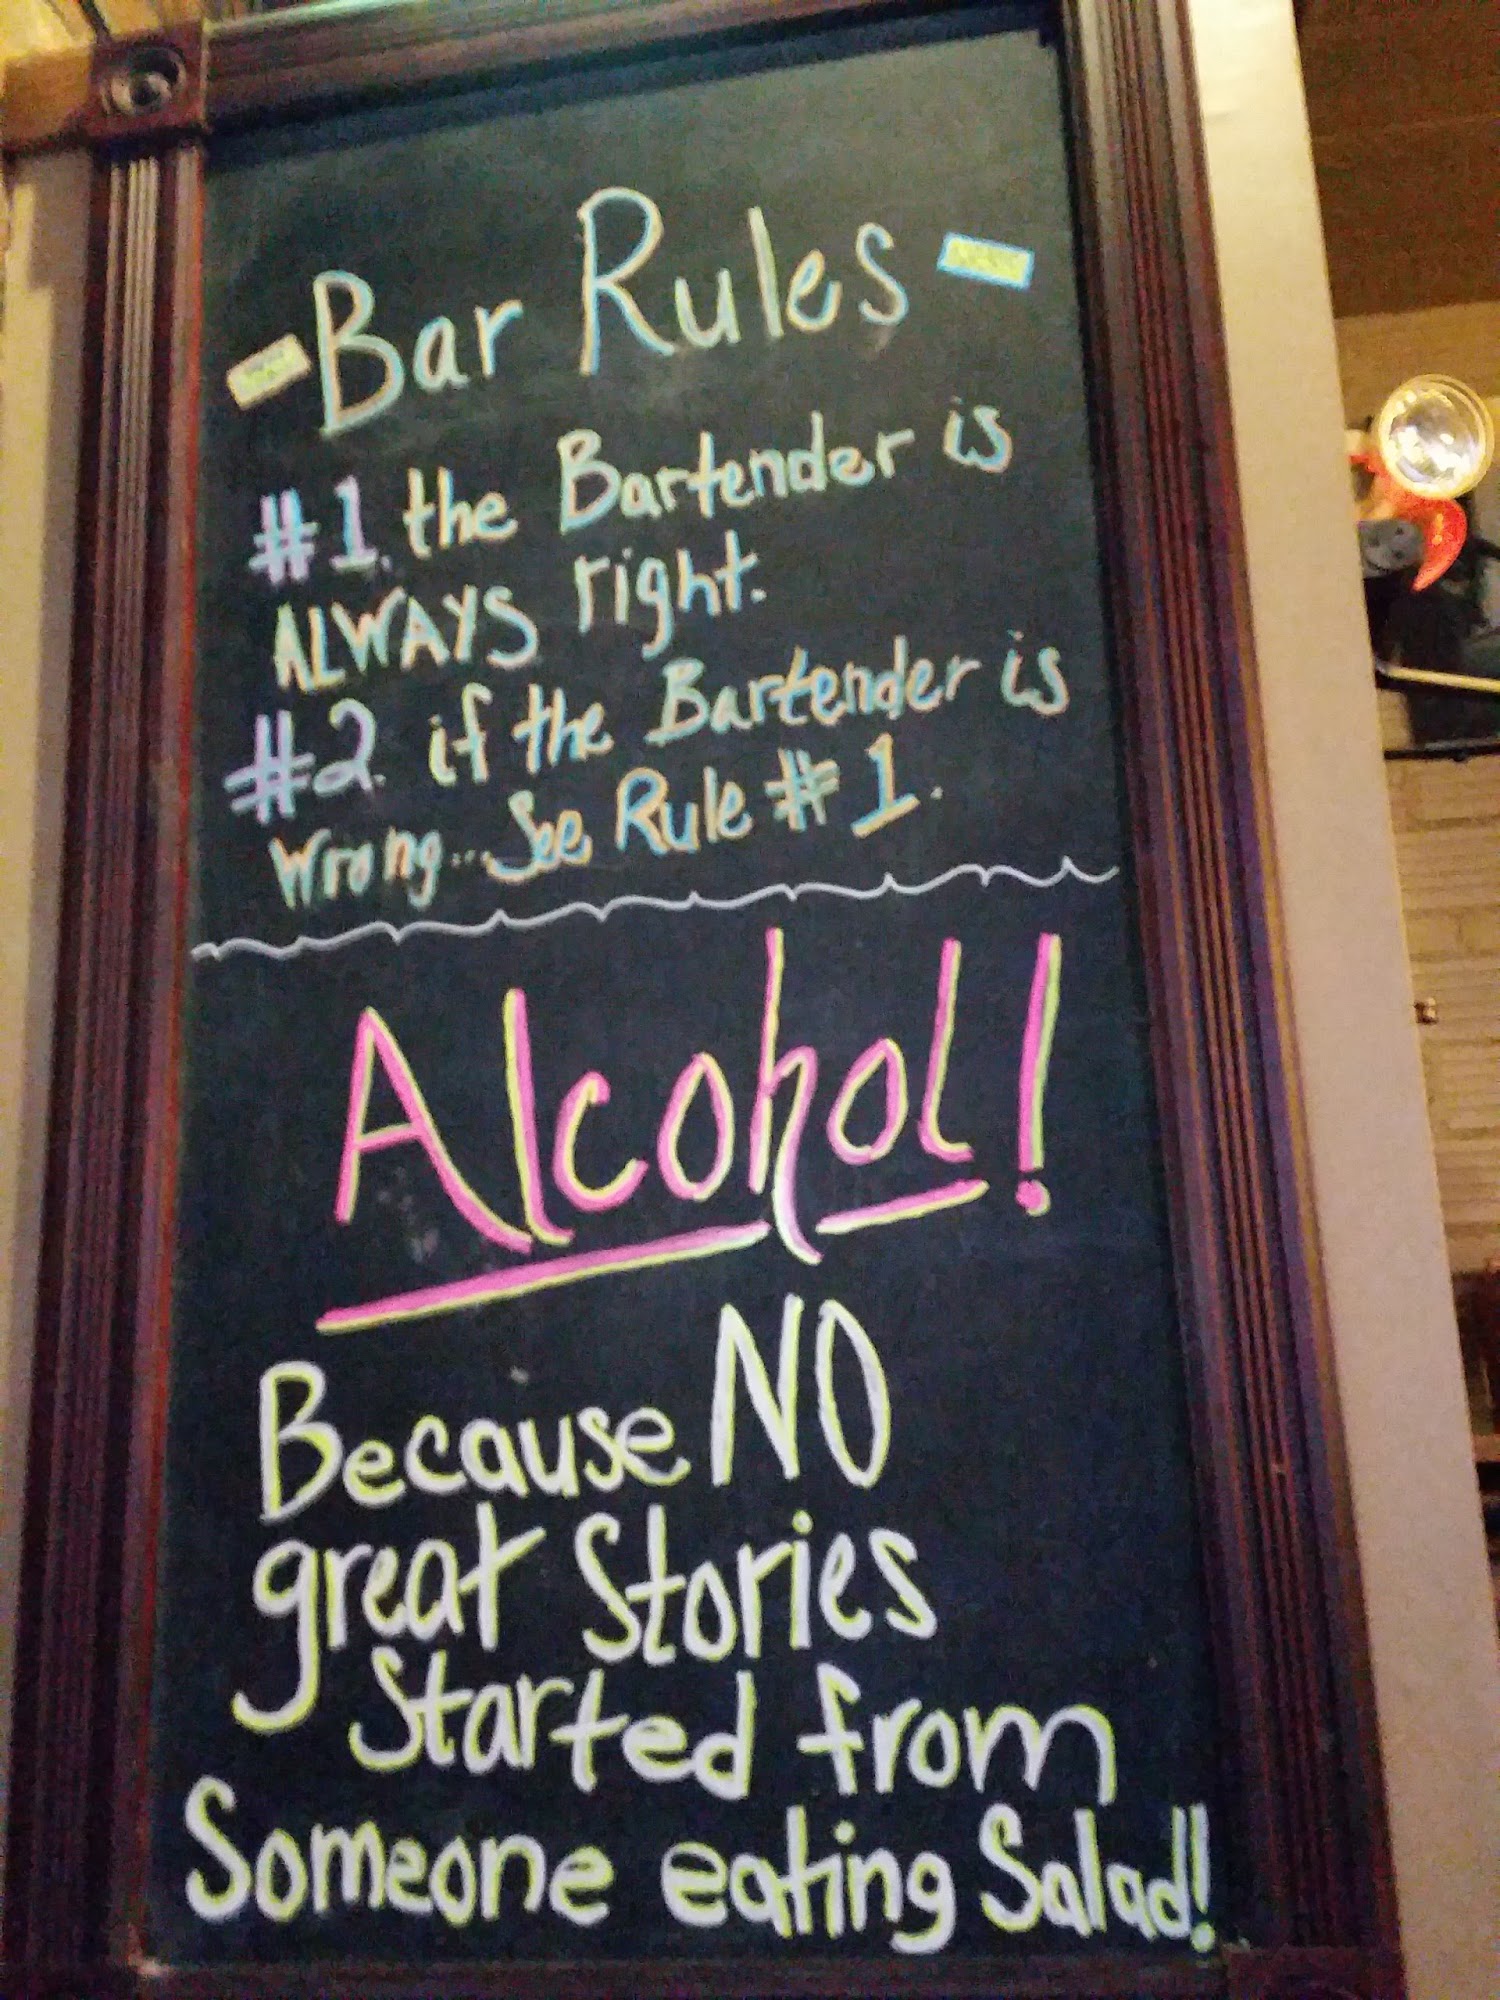 -Bar Rules-
#1. the Bartender is
ALWAYS right.
#2. if the Bartender is
Wrong... See Rule #1.
Alcohol!
Because NO
great Stories
Started from
Someone eating Salad!